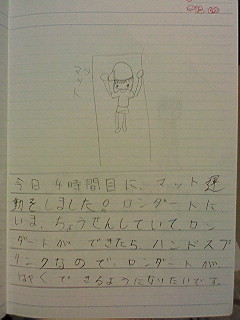 マット
今日4時間目に、マット運
動をしました。ロンダートに
いま、ちょうせんしていてロン
ダートができたら、ハンドスプ
リングなので、ロンダートが
はやくできるようになりたいです。